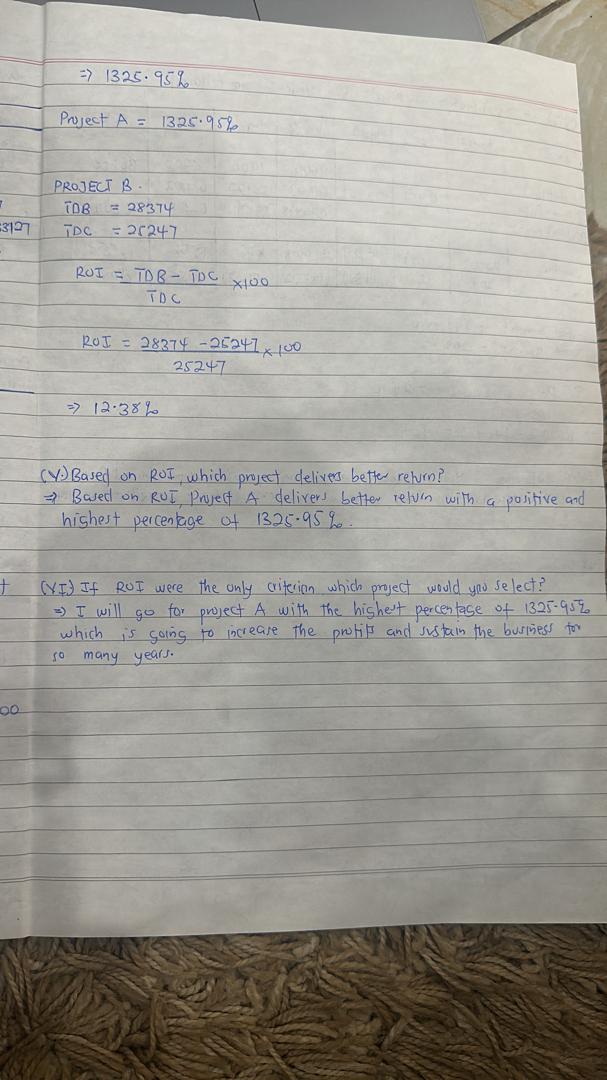 => 1325.95%
Project A = 1325.95%
PROJECT B.
TDB = 28374
53127
TDC = 25247
ROI = TDB - TDC x100
TDC
ROI = 28374 - 25247 x 100
25247
=> 12.38%
(V.) Based on ROI, which project delivers better return?
=> Based on ROI, Project A delivers better return with a positive and
highest percentage of 1325.95%.
(VI) If ROI were the only criterion which project would you select?
=> I will go for project A with the highest percentage of 1325.95%
which is going to increase the profits and sustain the business for
so many years.
00